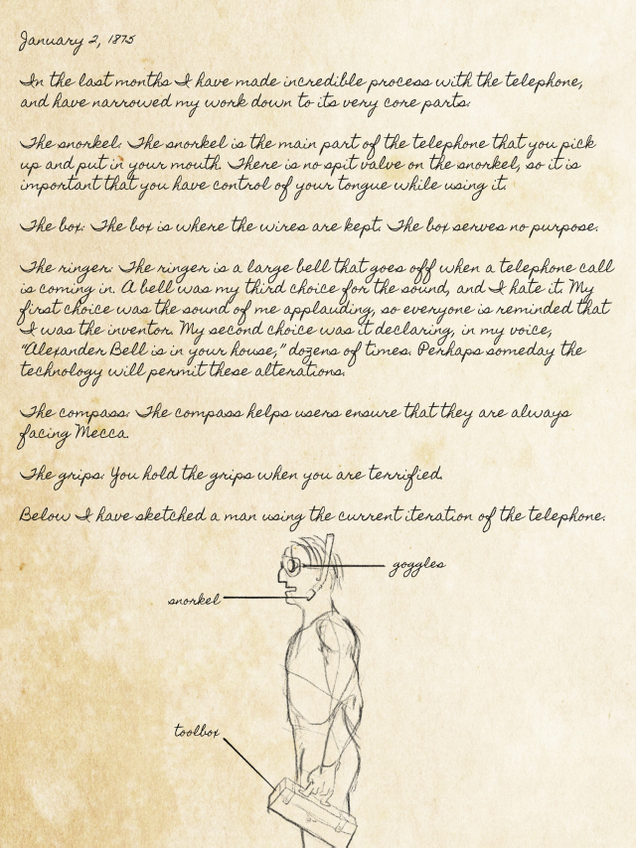 January 2, 1875
In the last months I have made incredible process with the telephone,
and have narrowed my work down to its very core parts:
The snorkel: The snorkel is the main part of the telephone that you pick
up and put in your mouth. There is no spit valve on the snorkel, so it is
important that you have control of your tongue while using it.
The box: The box is where the wires are kept. The box serves no purpose.
The ringer: The ringer is a large bell that goes off when a telephone call
is coming in. A bell was my third choice for the sound, and I hate it. My
first choice was the sound of me applauding, so everyone is reminded that
I was the inventor. My second choice was it declaring, in my voice,
“Alexander Bell is in your house,” dozens of times. Perhaps someday the
technology will permit these alterations.
The compass: The compass helps users ensure that they are always
facing Mecca.
The grips: You hold the grips when you are terrified.
Below I have sketched a man using the current iteration of the telephone.
goggles
snorkel
toolbox